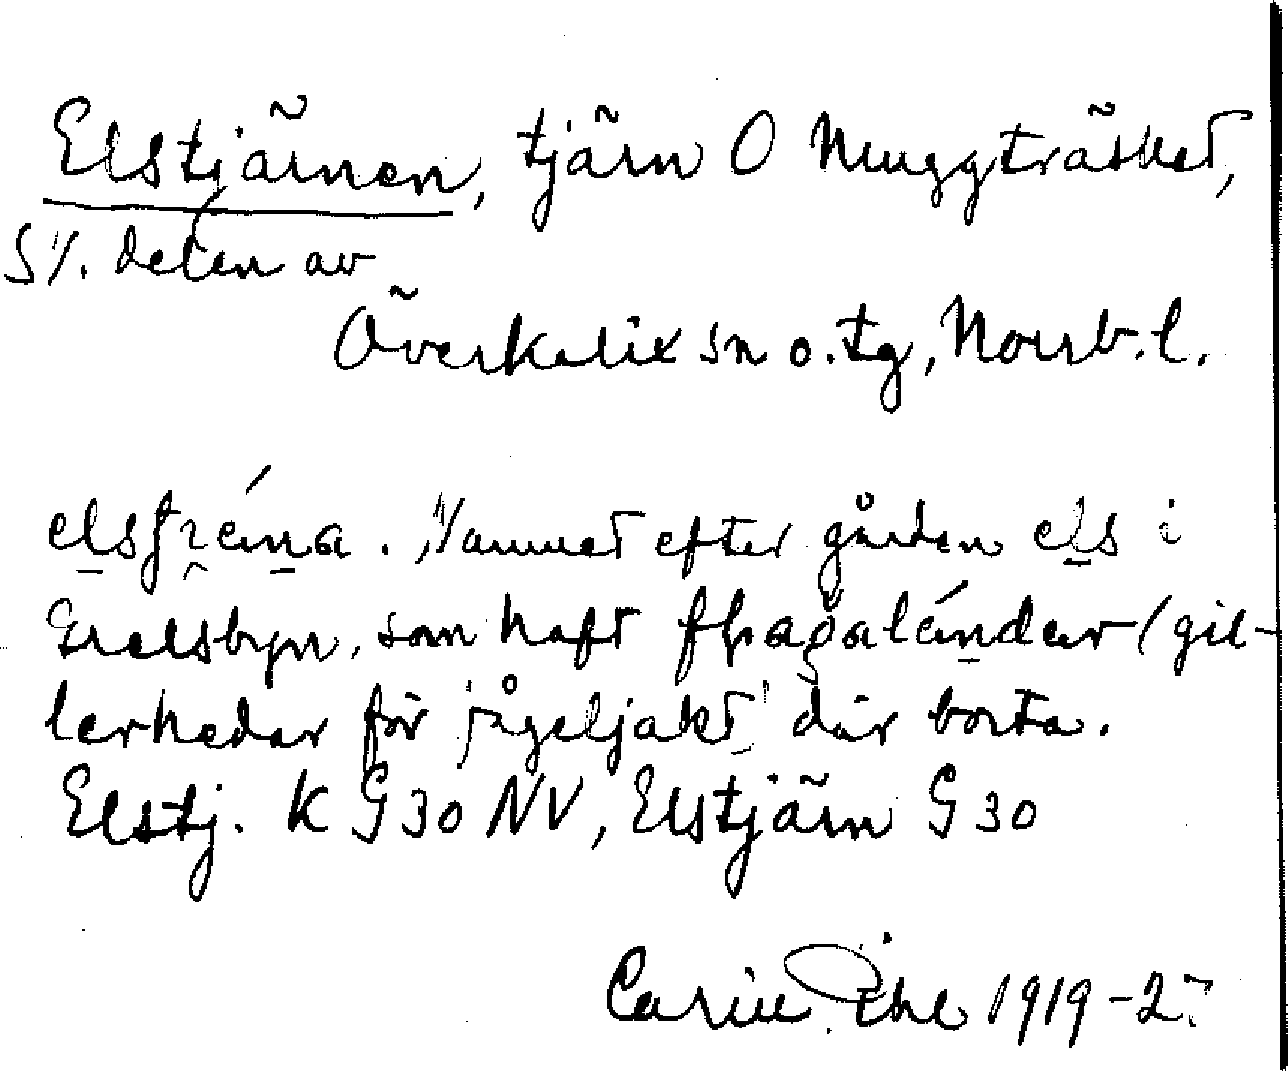 Elstjärnen, tjärn O Muggträsket,
S /. delen av
Överkalix sn o. tg, Norrb. l.
Namnet efter gården els i
som haft (gil-
lerhedar för fågeljakt där borta.
Elstj. K G 30 NV, Elstjärn G 30
Carin 1919-27